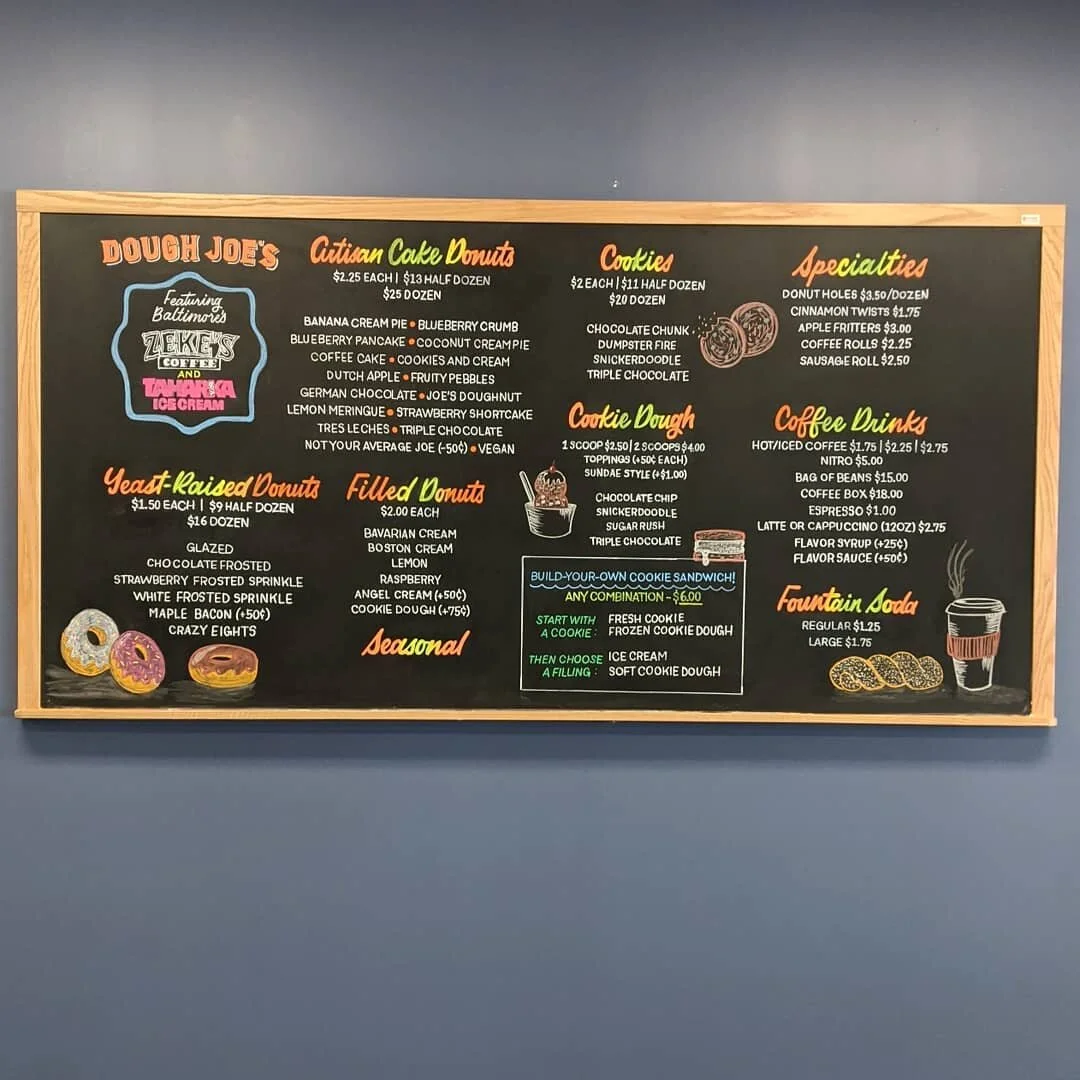 DOUGH JOE'S
Featuring
Baltimore's
ZEKE'S
COFFEE
AND
TAHARKA
ICE CREAM
Artisan Cake Donuts
$2.25 EACH | $13 HALF DOZEN
$25 DOZEN
BANANA CREAM PIE • BLUEBERRY CRUMB
BLUEBERRY PANCAKE • COCONUT CREAM PIE
COFFEE CAKE • COOKIES AND CREAM
DUTCH APPLE • FRUITY PEBBLES
GERMAN CHOCOLATE • JOE'S DOUGHNUT
LEMON MERINGUE • STRAWBERRY SHORTCAKE
TRES LECHES • TRIPLE CHOCOLATE
NOT YOUR AVERAGE JOE (-50¢) • VEGAN
Yeast-Raised Donuts
$1.50 EACH | $9 HALF DOZEN
$16 DOZEN
GLAZED
CHOCOLATE FROSTED
STRAWBERRY FROSTED SPRINKLE
WHITE FROSTED SPRINKLE
MAPLE BACON (+50¢)
CRAZY EIGHTS
Filled Donuts
$2.00 EACH
BAVARIAN CREAM
BOSTON CREAM
LEMON
RASPBERRY
ANGEL CREAM (+50¢)
COOKIE DOUGH (+75¢)
Seasonal
Cookies
$2 EACH | $11 HALF DOZEN
$20 DOZEN
CHOCOLATE CHUNK
DUMPSTER FIRE
SNICKERDOODLE
TRIPLE CHOCOLATE
Cookie Dough
1 SCOOP $2.50 | 2 SCOOPS $4.00
TOPPINGS (+50¢ EACH)
SUNDAE STYLE (+$1.00)
CHOCOLATE CHIP
SNICKERDOODLE
SUGAR RUSH
TRIPLE CHOCOLATE
BUILD-YOUR-OWN COOKIE SANDWICH!
ANY COMBINATION - $6.00
START WITH
A COOKIE:
FRESH COOKIE
FROZEN COOKIE DOUGH
THEN CHOOSE
A FILLING:
ICE CREAM
SOFT COOKIE DOUGH
Specialties
DONUT HOLES $3.50/DOZEN
CINNAMON TWISTS $1.75
APPLE FRITTERS $3.00
COFFEE ROLLS $2.25
SAUSAGE ROLL $2.50
Coffee Drinks
HOT/ICED COFFEE $1.75 | $2.25 | $2.75
NITRO $5.00
BAG OF BEANS $15.00
COFFEE BOX $18.00
ESPRESSO $1.00
LATTE OR CAPPUCCINO (12OZ) $2.75
FLAVOR SYRUP (+25¢)
FLAVOR SAUCE (+50¢)
Fountain Soda
REGULAR $1.25
LARGE $1.75